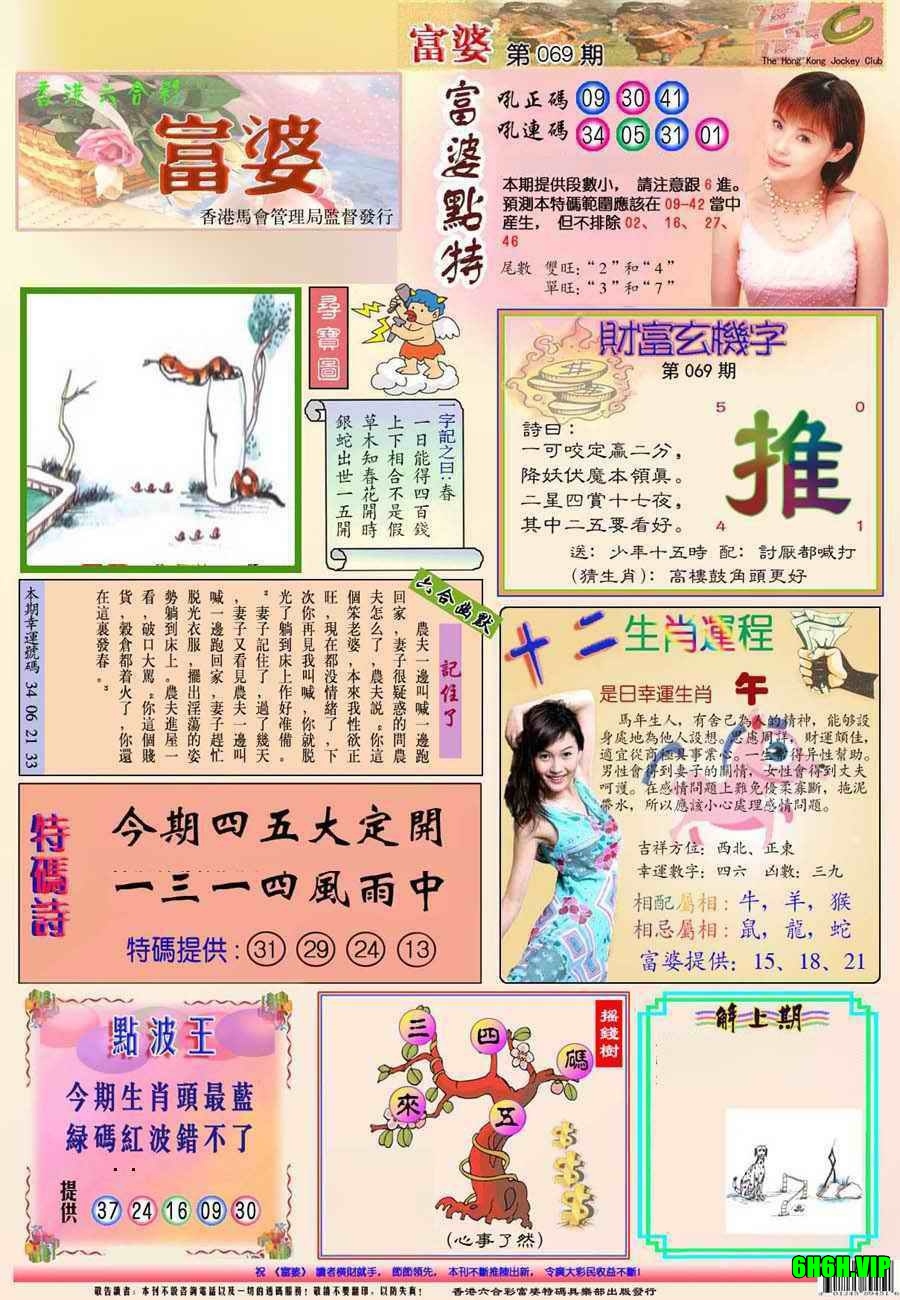 富婆 第069期
The Hong Kong Jockey Club
香港六合彩
富婆
香港馬會管理局監督發行
富婆點特
吼正碼 09 30 41
吼連碼 34 05 31 01
本期提供段數小， 請注意跟6進。
預測本特碼範圍應該在09-42當中
產生， 但不排除02、 16、 27、
46
尾數 雙旺:“2”和“4”
單旺:“3”和“7”
尋寶圖
一字記之曰:春
一日能得四百錢
上下相合不是假
草木知春花開時
銀蛇出世一五開
財富玄機字
第069期
詩曰:
一可咬定贏二分，
降妖伏魔本領真。
二星四賞十七夜，
其中二五要看好。
5 0
推
4 1
送: 少年十五時 配: 討厭都喊打
(猜生肖): 高樓鼓角頭更好
六合幽默
記住了
農夫一邊叫喊一邊跑
回家,妻子很疑惑的問農
夫怎么了,農夫説。你這
個笨老婆,本來我性欲正
旺,現在都没情緒了,下
次你再見我叫喊,你就脱
光了躺到床上作好准備。
"妻子記住了,過了幾天
,妻子又看見農夫一邊叫
喊一邊跑回家,妻子趕忙
脱光衣服,擺出淫蕩的姿
勢躺到床上。農夫進屋一
看,破口大駡"你這個賤
貨,穀倉都着火了,你還
在這裏發春。"
本期幸運號碼 34 06 21 33
十二生肖運程
是日幸運生肖 午
馬年生人，有舍己為人的精神，能够設
身處地為他人設想。思慮周詳，財運頗佳，
適宜從商極具事業心。一生幫得异性幫助。
男性會得到妻子的關情，女性會得到丈夫
呵護。在感情問題上難免優柔寡斷，拖泥
帶水，所以應該小心處理感情問題。
吉祥方位: 西北、正東
幸運數字: 四六 凶數: 三九
相配屬相: 牛, 羊, 猴
相忌屬相: 鼠, 龍, 蛇
富婆提供: 15、18、21
特碼詩
今期四五大定開
一三一四風雨中
特碼提供: 31 29 24 13
點波王
今期生肖頭最藍
緑碼紅波錯不了
提供 37 24 16 09 30
搖錢樹
三 四 碼
來 五
(心事了然)
解上期
祝 《富婆》 讀者横財就手， 節節領先， 本刊不斷推陳出新， 令廣大彩民收益不斷!
敬告讀者: 本刊不設咨詢電話以及一切的透碼服務! 敬請不要翻印, 以防失真!
香港六合彩富婆特碼具樂部出版發行
6H6H.VIP